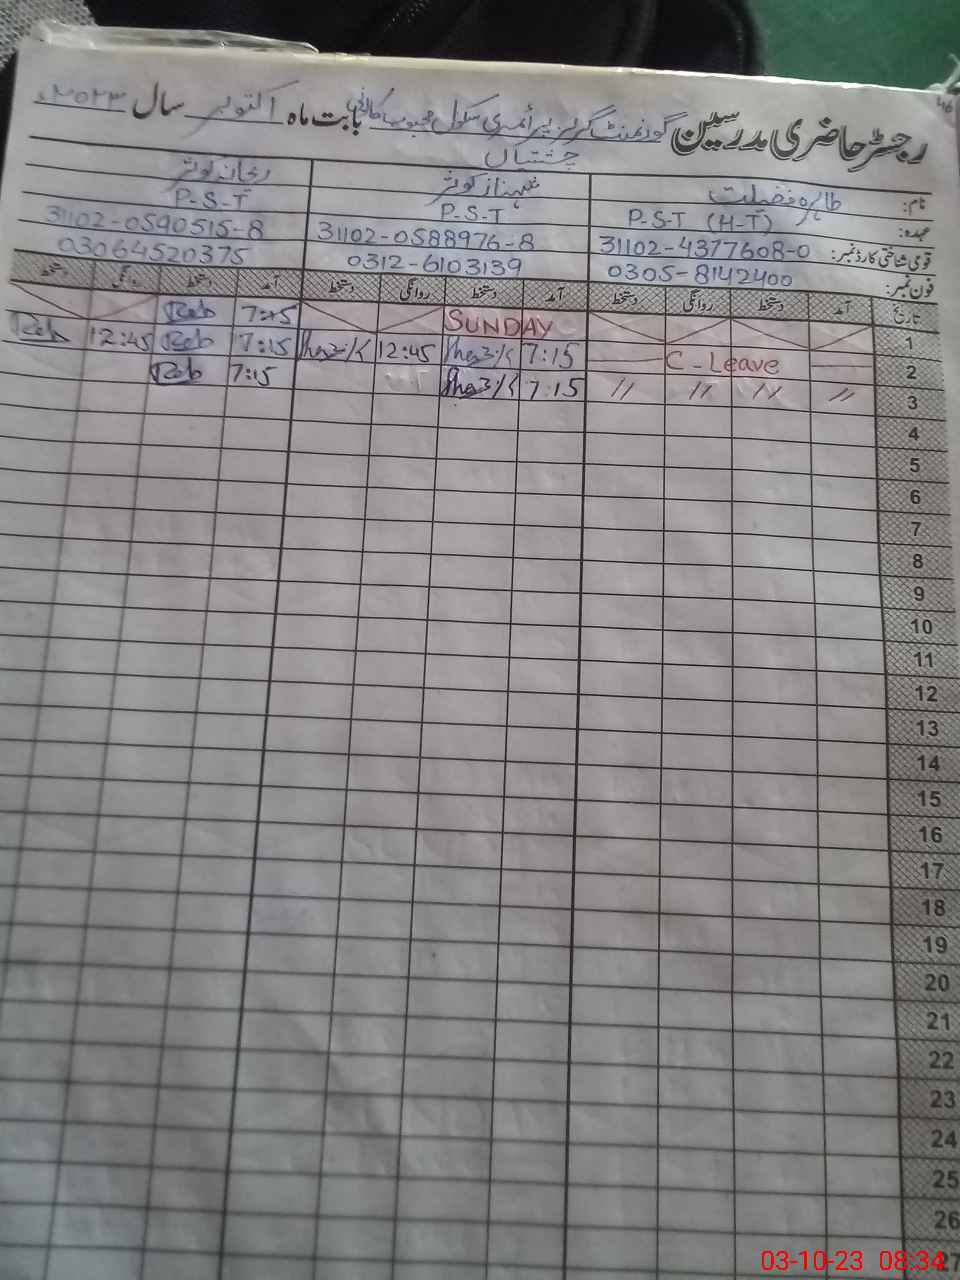 ۴۶
رجسٹر حاضری مدرسین گورنمنٹ گرلز پرائمری سکول محبوب کالونی بابت ماہ اکتوبر سال ۲۰۲۳ء
چشتیاں
نام: طاہرہ فضیلت شہناز کوثر ریحانہ کوثر
عہدہ: P-S-T (H-T) P-S-T P-S-T
قومی شناختی کارڈ نمبر: 31102-4377608-0 31102-0588976-8 31102-0590515-8
فون نمبر: 0305-8142400 0312-6103139 03064520375
تاریخ آمد دستخط روانگی دستخط آمد دستخط روانگی دستخط آمد دستخط روانگی دستخط
1 SUNDAY 7:15 Reb
2 C-Leave 7:15 12:45 7:15 Reb 12:45 Reb
3 〃 〃 〃 〃 7:15 7:15 Reb
4
5
6
7
8
9
10
11
12
13
14
15
16
17
18
19
20
21
22
23
24
25
26
27
03-10-23 08:34